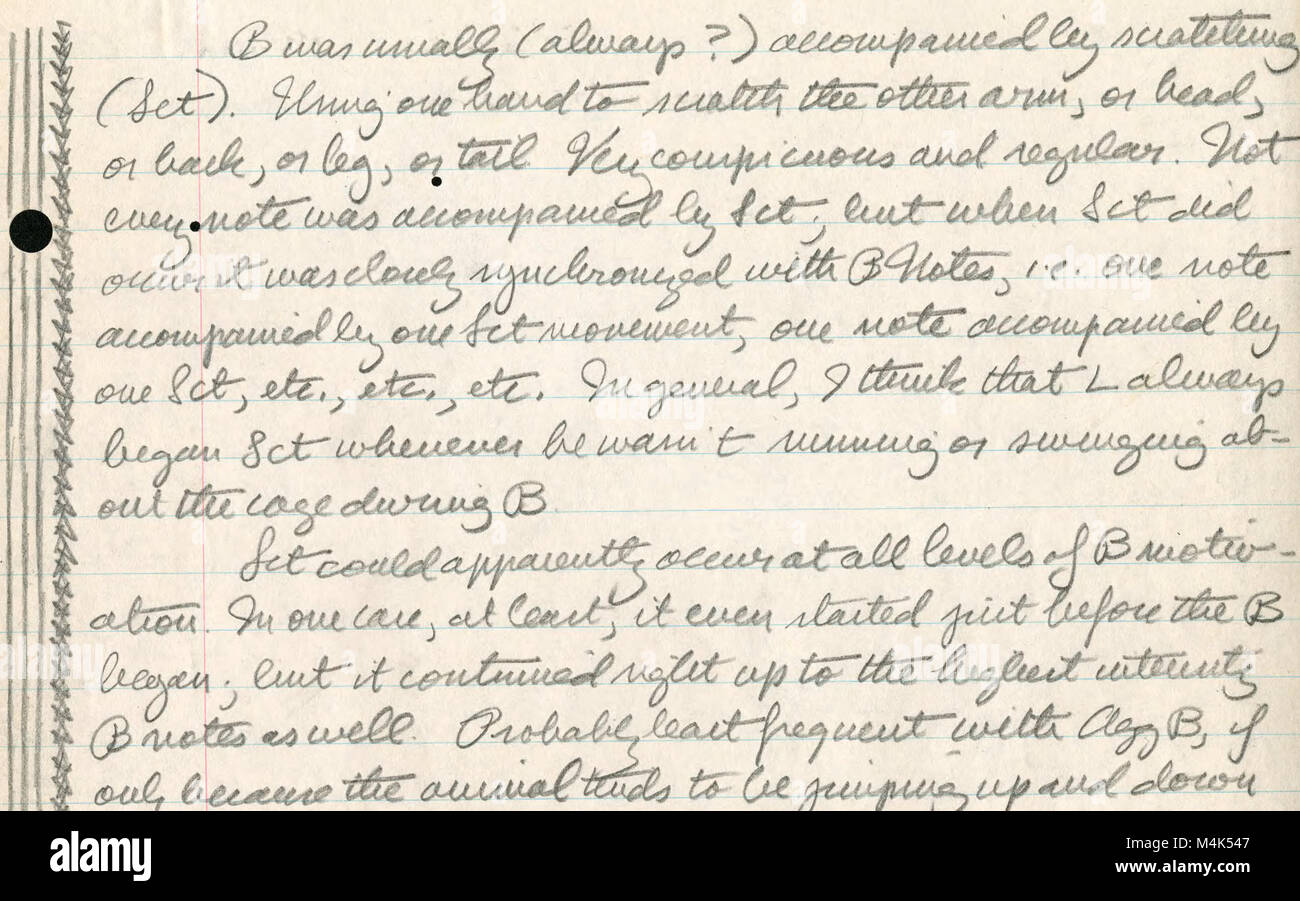 B was usually (always?) accompanied by scratching
(Sct). Using one hand to scratch the other arm, or head,
or back, or leg, or tail. Very conspicuous and regular. Not
every note was accompanied by Sct; but when Sct did
occur it was closely synchronized with B Notes, i.e. one note
accompanied by one Sct movement, one note accompanied by
one Sct, etc., etc., etc. In general, I think that L always
began Sct whenever he wasn't running or swinging ab-
out the cage during B.
Sct could apparently occur at all levels of B motiv-
ation. In one case, at least, it even started just before the B
began; but it continued right up to the highest intensity
B notes as well. Probably least frequent with Agg B, if
only because the animal tends to be jumping up and down
alamy
Image ID: M4K547
www.alamy.com